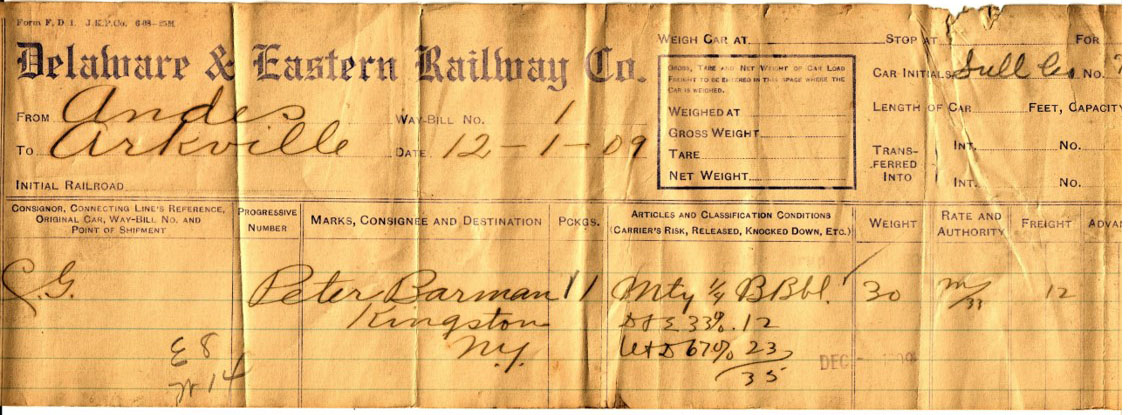 Form F. D 1. J.K.P.Co. 6-08-25M.
Delaware & Eastern Railway Co.
FROM Andes WAY-BILL NO. 1
TO Arkville DATE 12-1-09
INITIAL RAILROAD
WEIGH CAR AT STOP AT FOR
GROSS, TARE AND NET WEIGHT OF CAR LOAD
FREIGHT TO BE ENTERED IN THIS SPACE WHERE THE
CAR IS WEIGHED.
WEIGHED AT
GROSS WEIGHT
TARE
NET WEIGHT
CAR INITIALS NO.
LENGTH OF CAR FEET, CAPACITY
TRANS-
FERRED
INTO
INT. NO.
INT. NO.
CONSIGNOR, CONNECTING LINE'S REFERENCE,
ORIGINAL CAR, WAY-BILL NO. AND
POINT OF SHIPMENT
PROGRESSIVE
NUMBER
MARKS, CONSIGNEE AND DESTINATION
PCKGS.
ARTICLES AND CLASSIFICATION CONDITIONS
(CARRIER'S RISK, RELEASED, KNOCKED DOWN, ETC.)
WEIGHT
RATE AND
AUTHORITY
FREIGHT
ADVAN
Peter Barman 1 Mty ¼ B Bbl. 30 M/33 12
Kingston
N.Y.
D & E 33%. 12
U & D 67% 23
35
DEC